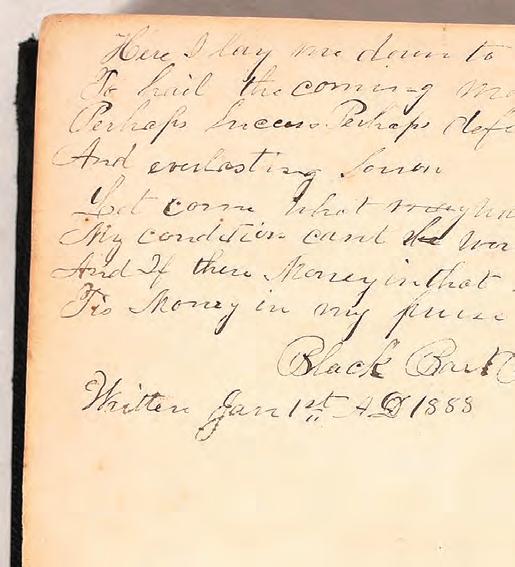 Here I lay me down to
To hail the coming mo
Perhaps Success Perhaps defe
And everlasting Sorrow
Let come what may
My condition cant be wor
And If there Money in that
Tis Money in my purse
Black Bart
Written Jan 1st AD 1888